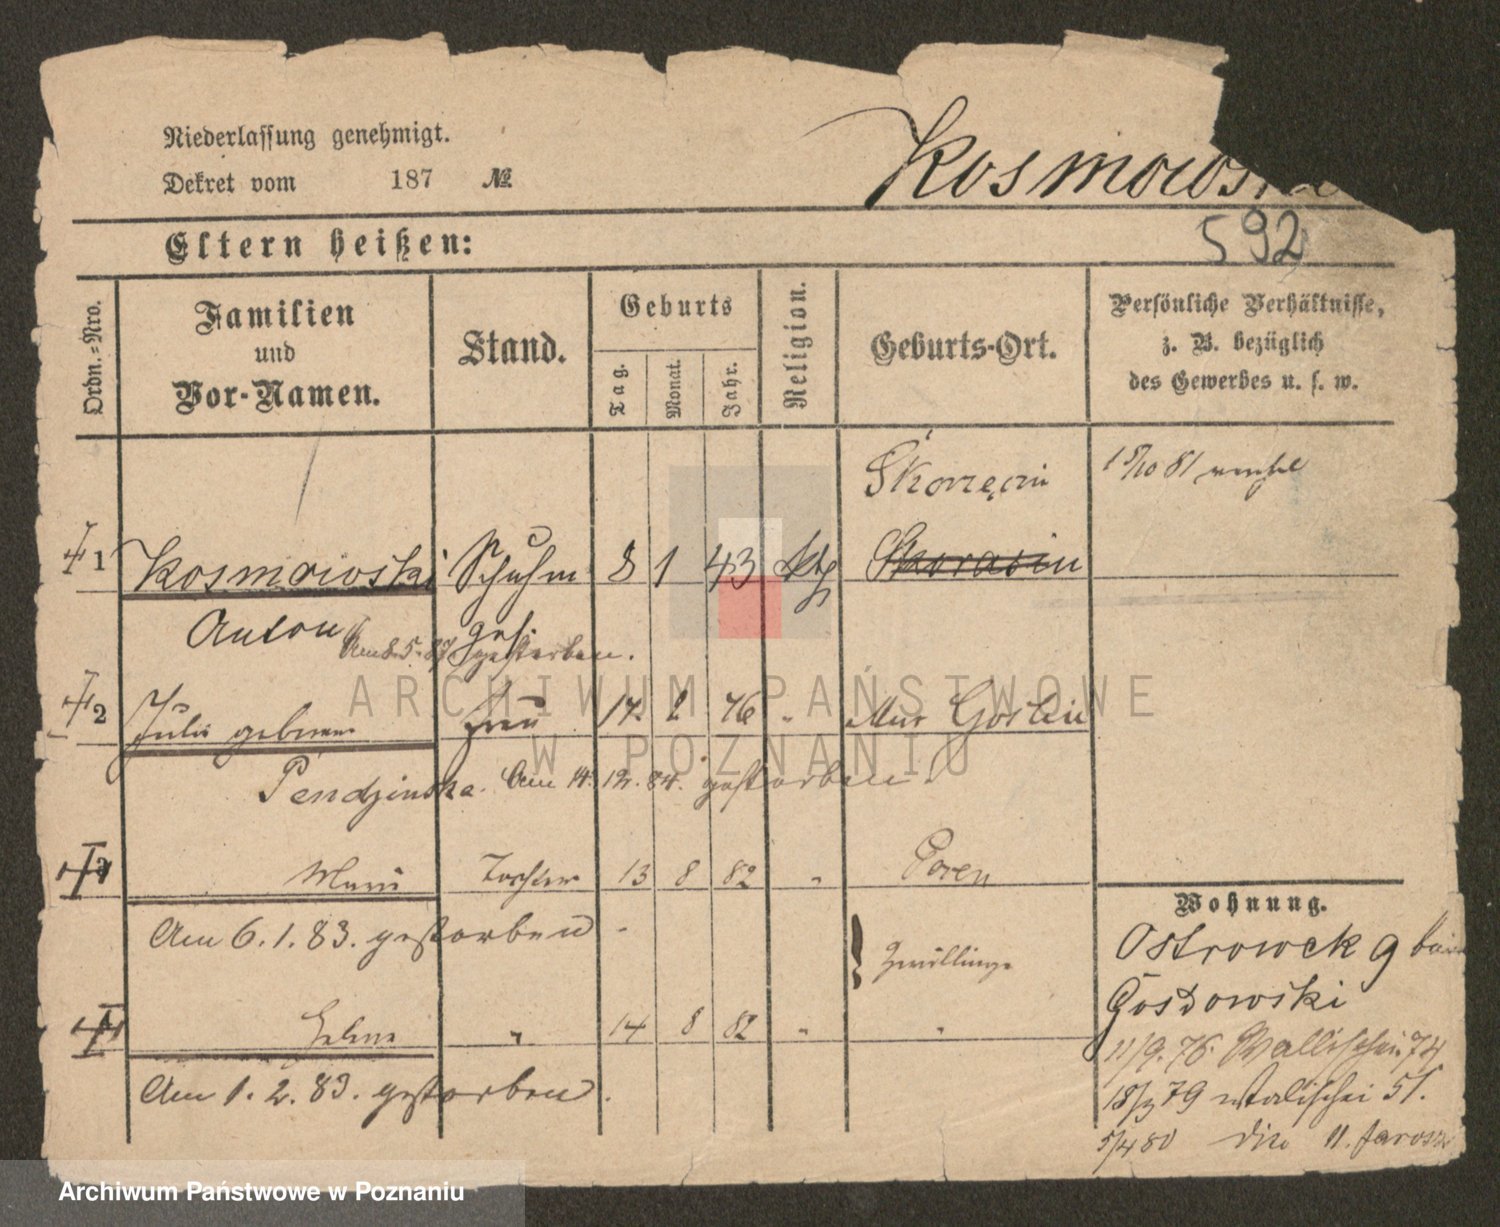 Niederlassung genehmigt.
Dekret vom 187 №
Kosmowski
592
Eltern heißen:
Ordn.-Nro.
Familien und Vor-Namen.
Stand.
Geburts
Tag.
Monat.
Jahr.
Religion.
Geburts-Ort.
Persönliche Verhältnisse,
z. B. bezüglich
des Gewerbes u. s. w.
Skorzęcin
15/10 81
1 Kosmowski Schuhm 8 1 43 kth
Anton ges.
Am 8.5.87 gestorben.
2 Julie geborene Frau 17. 2 "
Pendzinska. Am 14. 12. 84. gestorben.
3 Marie Tochter 13 8 82 " Posen
Am 6. 1. 83. gestorben.
Zwillinge
" 14 8 82 " "
Am 1. 2. 83. gestorben.
Wohnung.
Ostrowek 9 bei
Gosdowski
11/9. 76. Wallischei 74
18/3 79 Walischei 51.
5/4 80 dito 11.
ARCHIWUM PAŃSTWOWE
W POZNANIU
Archiwum Państwowe w Poznaniu